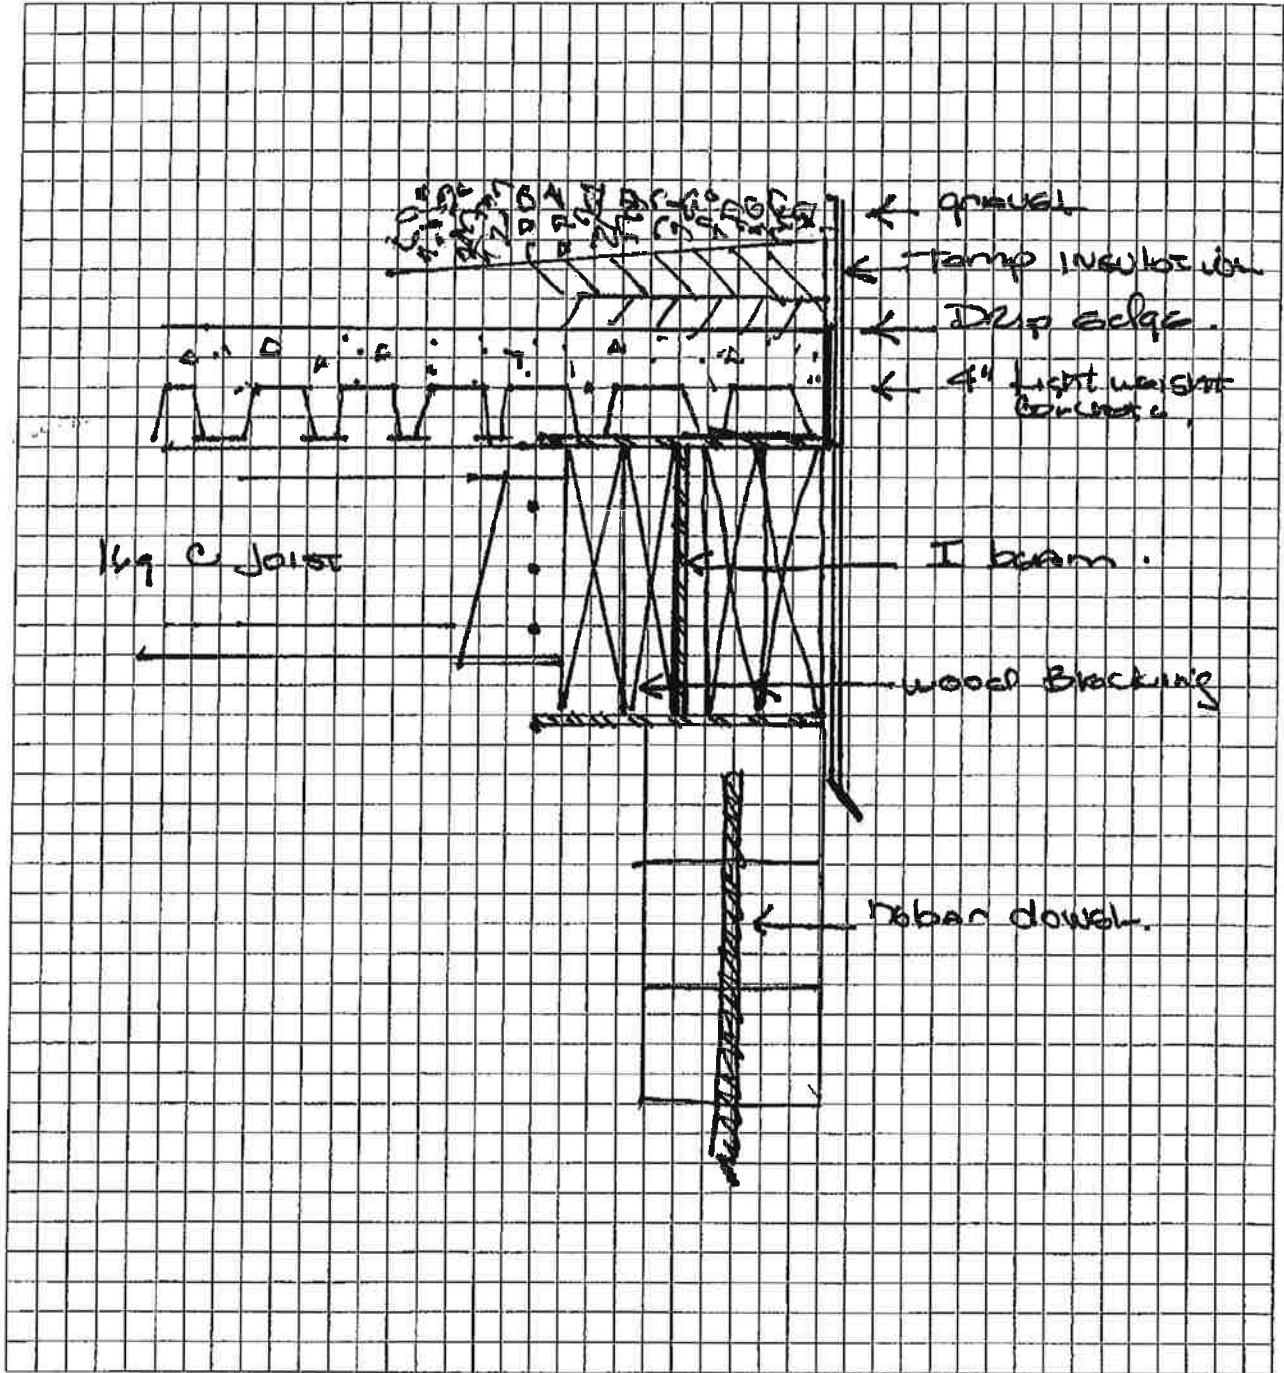 gravel
Temp insulation
Drip edge.
4" Light weight
Concrete
C Joist
I beam.
wood Blocking
rebar dowel.